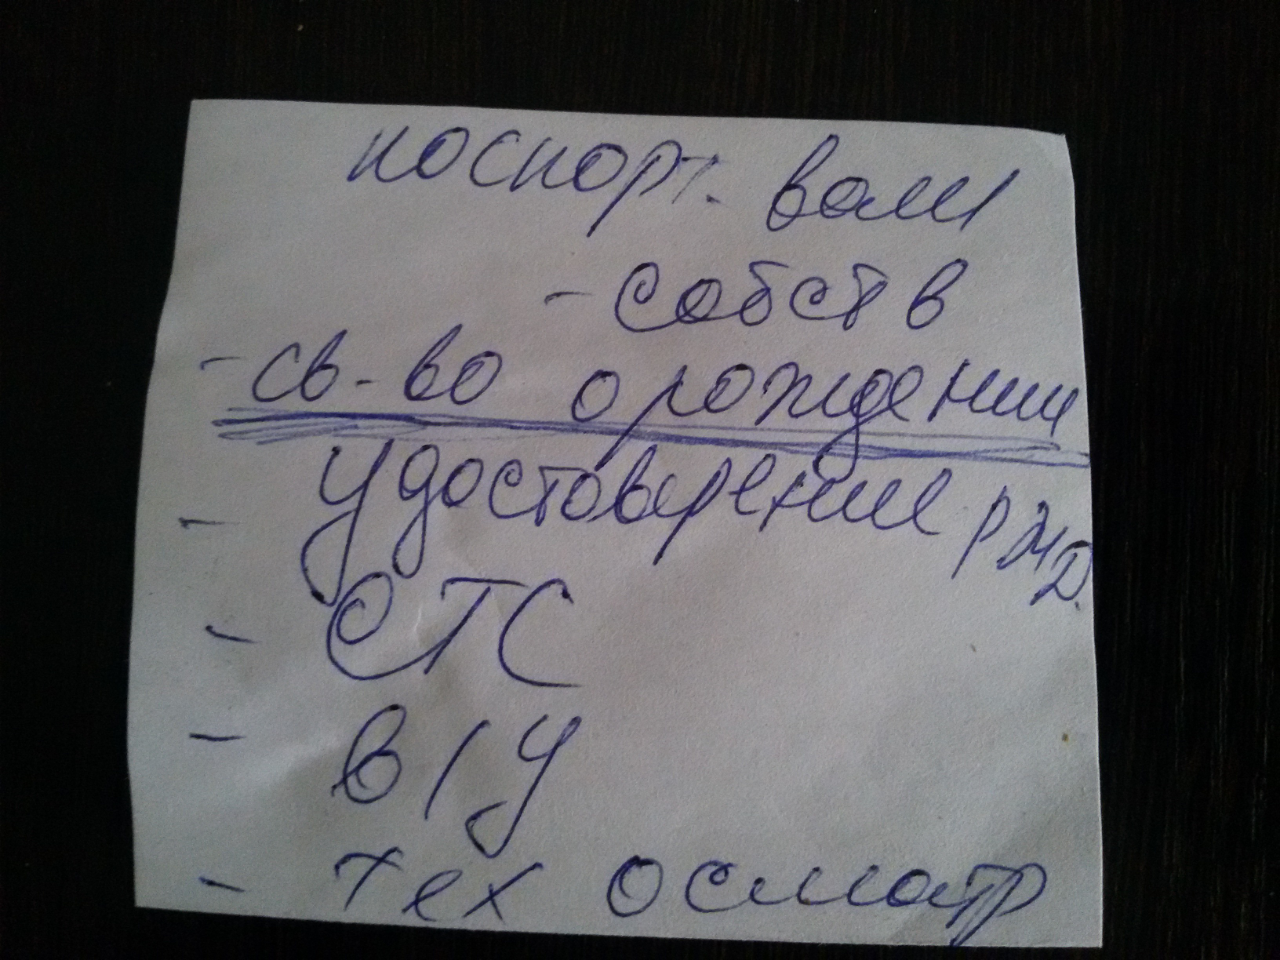 паспорт. ваш
- собств
- св-во о рождении
- удостоверение ржд.
- СТС
- в/у
- тех осмотр